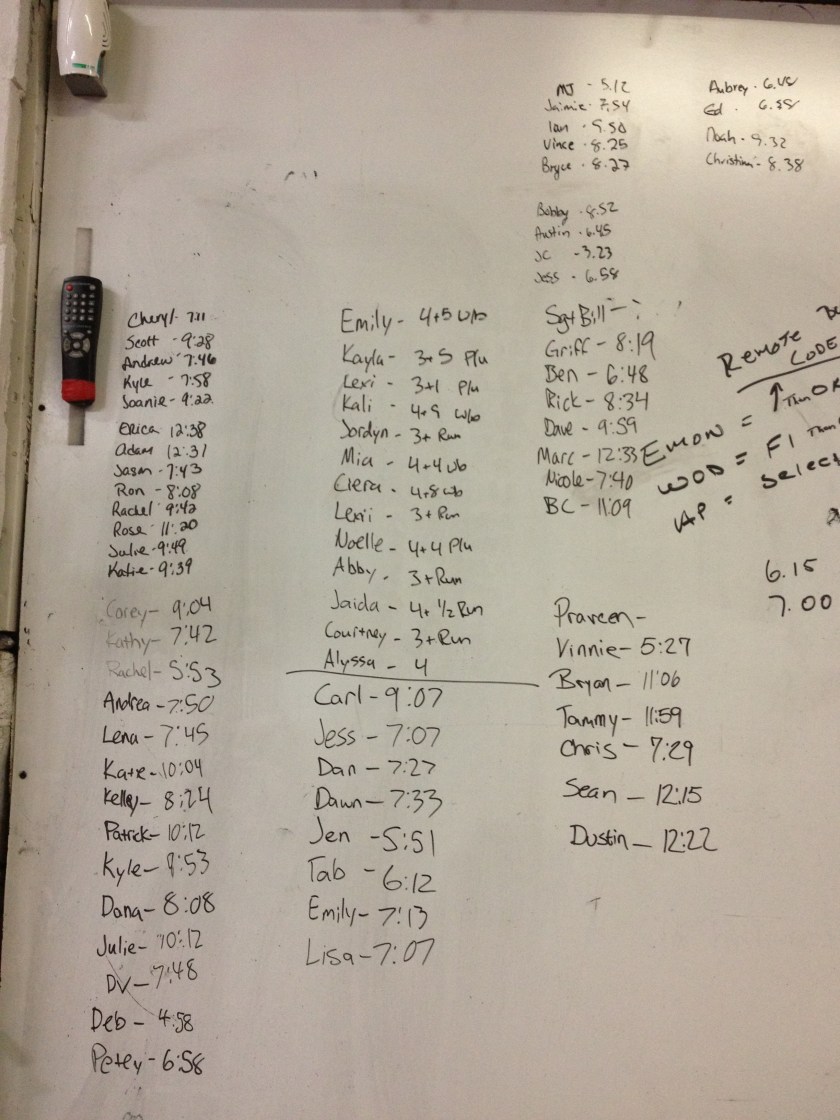 MJ - 5.12
Jaimie - 7.54
Ian - 9.50
Vince - 8.25
Bryce - 8.27
Aubrey - 6.48
Ed - 6.58
Noah - 9.32
Christina - 8.38
Bobby - 8.52
Austin - 6.45
JC - 3.23
Jess - 6.58
Cheryl - 7:11
Scott - 9:28
Andrew 7:46
Kyle - 7:58
Joanie - 9:22
Erica 12:38
Adam 12:31
Jason - 7:43
Ron - 8:08
Rachel 9:42
Rose 11:20
Julie - 9:49
Katie - 9:39
Corey - 9:04
Kathy - 7:42
Rachel - 5:53
Andrea - 7:50
Lena - 7:45
Kate - 10:04
Kelley - 8:24
Patrick - 10:12
Kyle - 8:53
Dana - 8:08
Julie - 10:12
DV - 7:48
Deb - 4:58
Petey - 6:58
Emily - 4+5 w/b
Kayla - 3+5 P/u
Lexi - 3+1 P/u
Kali - 4+9 w/b
Jordyn - 3+ Run
Mia - 4+4 wb
Ciera - 4+8 wb
Lexi - 3+Run
Noelle - 4+4 P/u
Abby - 3+Run
Jaida - 4+ 1/2 Run
Courtney - 3+Run
Alyssa - 4
Carl - 9:07
Jess - 7:07
Dan - 7:27
Dawn - 7:33
Jen - 5:51
Tab - 6:12
Emily - 7:13
Lisa - 7:07
Sgt Bill - ?
Griff - 8:19
Ben - 6:48
Rick - 8:34
Dave - 9:59
Marc - 12:33
Nicole - 7:40
BC - 11:09
Praveen -
Vinnie - 5:27
Bryan - 11:06
Tammy - 11:59
Chris - 7:29
Sean - 12:15
Dustin - 12:22
Remote
CODE
EMON = ↑ Then OK
WOD = F1 Then
AP = Select
6.15
7.00